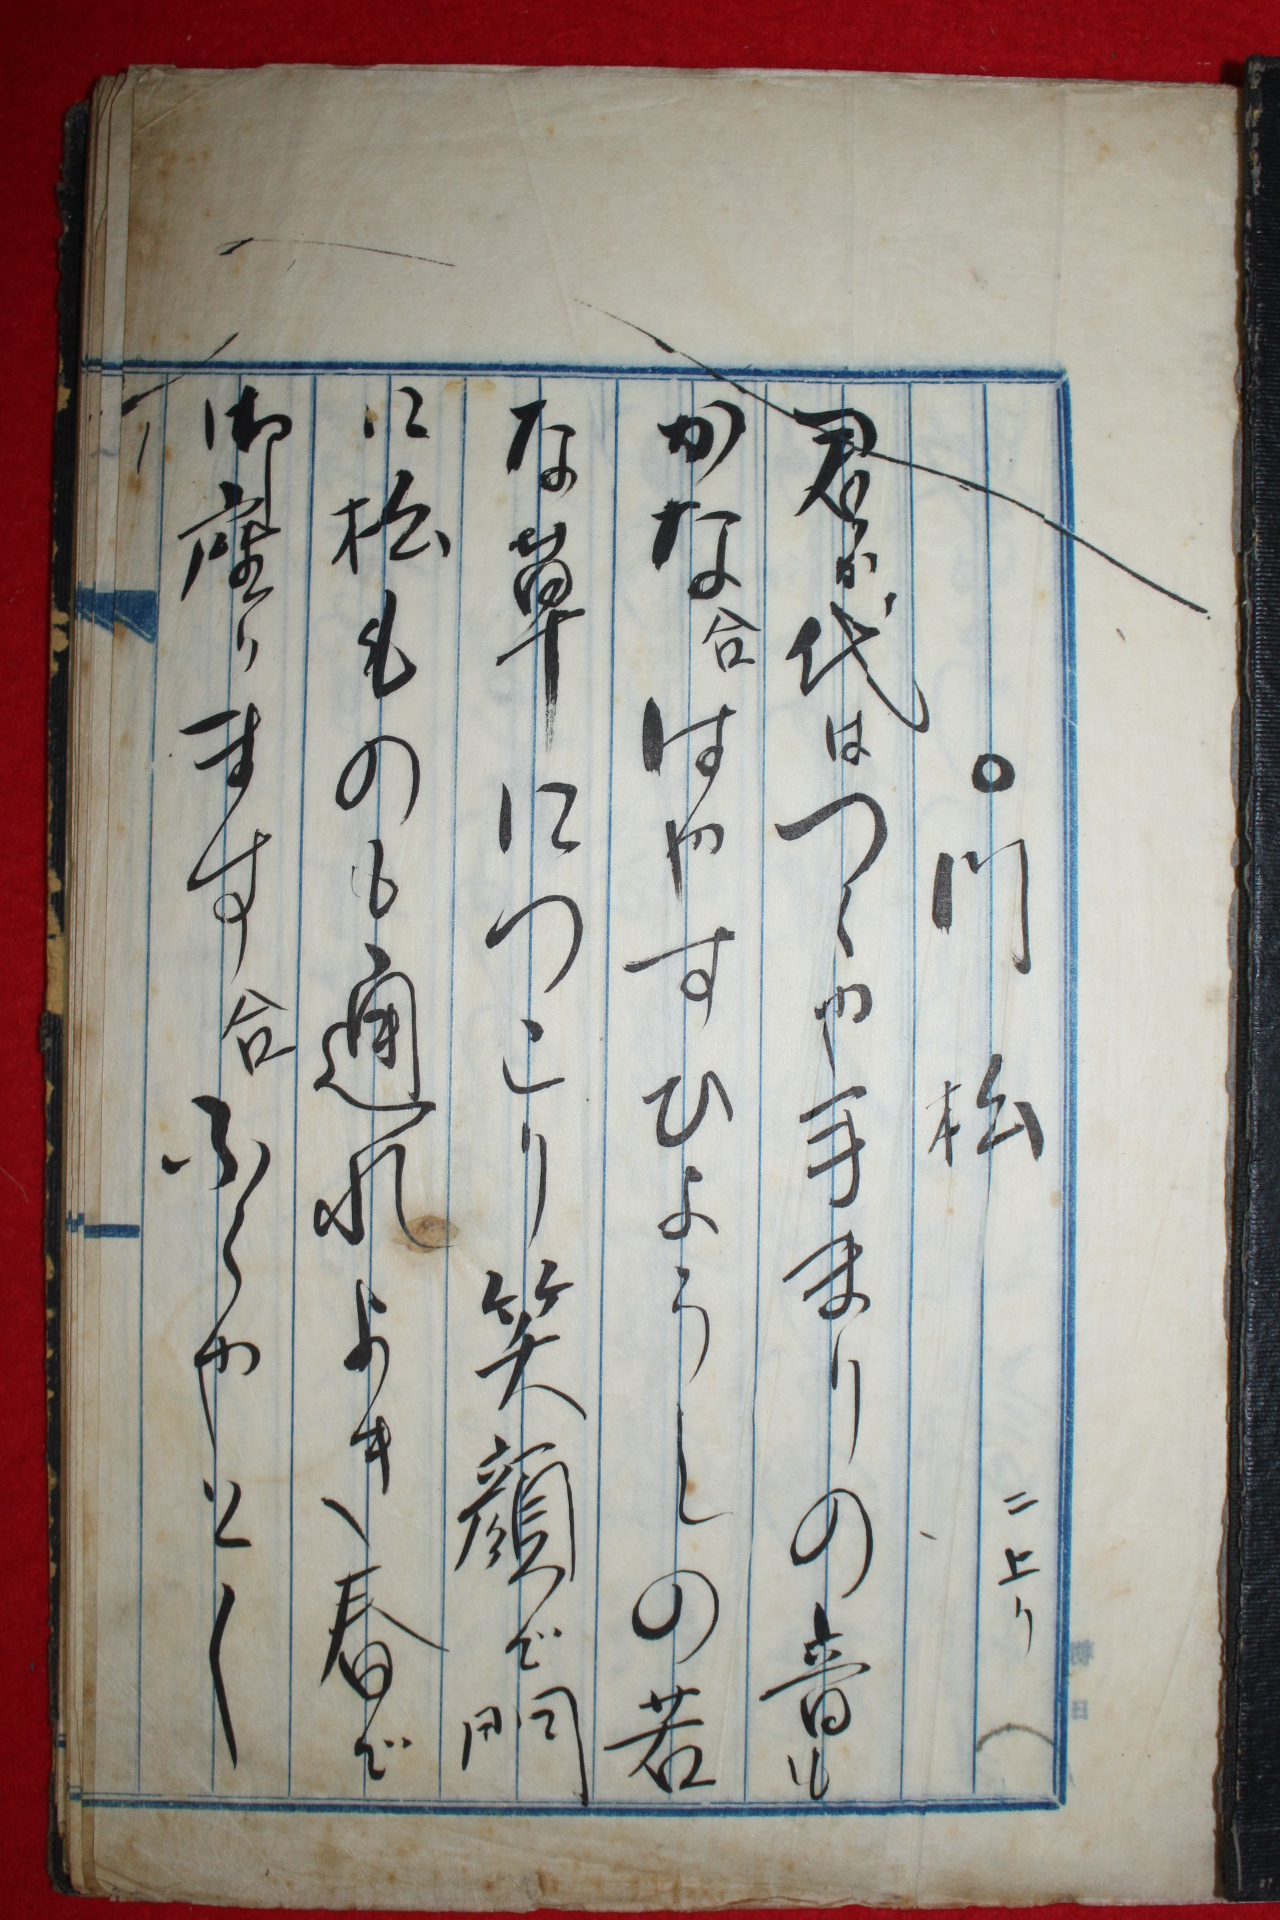 ○門松
二上り
君が代はつくや手まりの音も
かな合はやすひようしの若
な草につこり笑顔で門
に松ものも通れよき春で
御座ります合ふくやとく